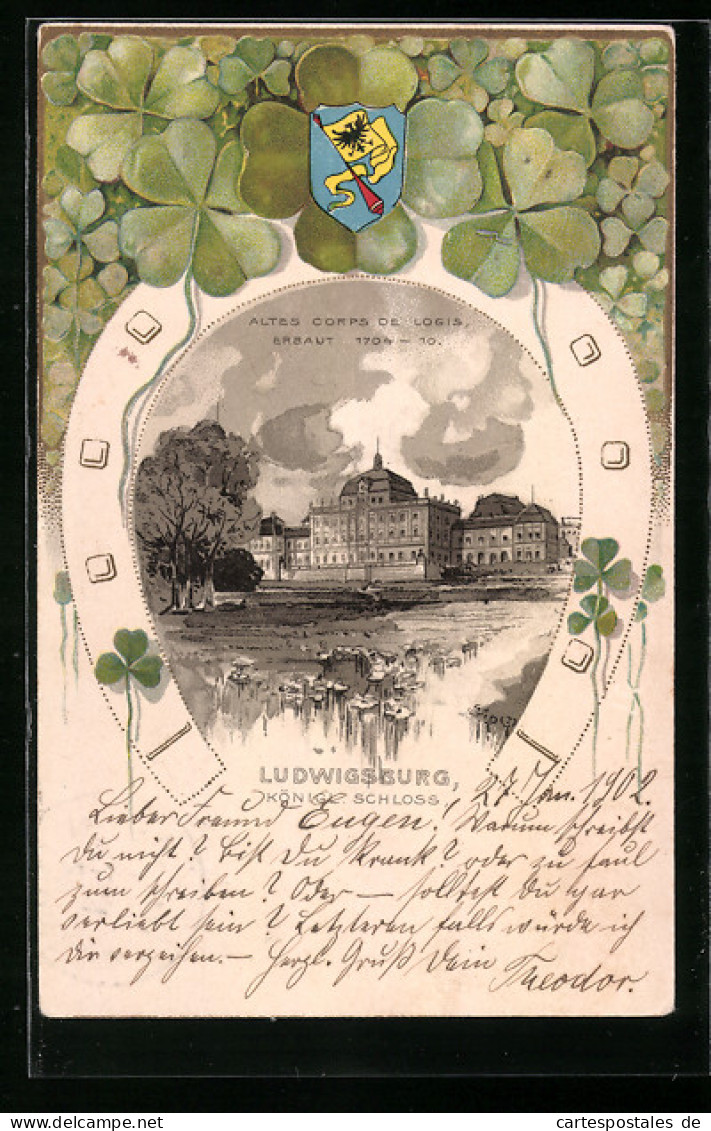 ALTES CORPS DE LOGIS,
ERBAUT 1704 – 10.
LUDWIGSBURG,
KÖNIGL. SCHLOSS
27. Jan. 1902.
Lieber Freund Eugen! Warum schreibst
Du nicht? Bist Du krank? oder zu faul
zum schreiben? Oder — solltest Du gar
verliebt sein? Letzteren falls würde ich
Dir verzeihen. — Herzl. Gruß Dein Theodor.
cartespostales de